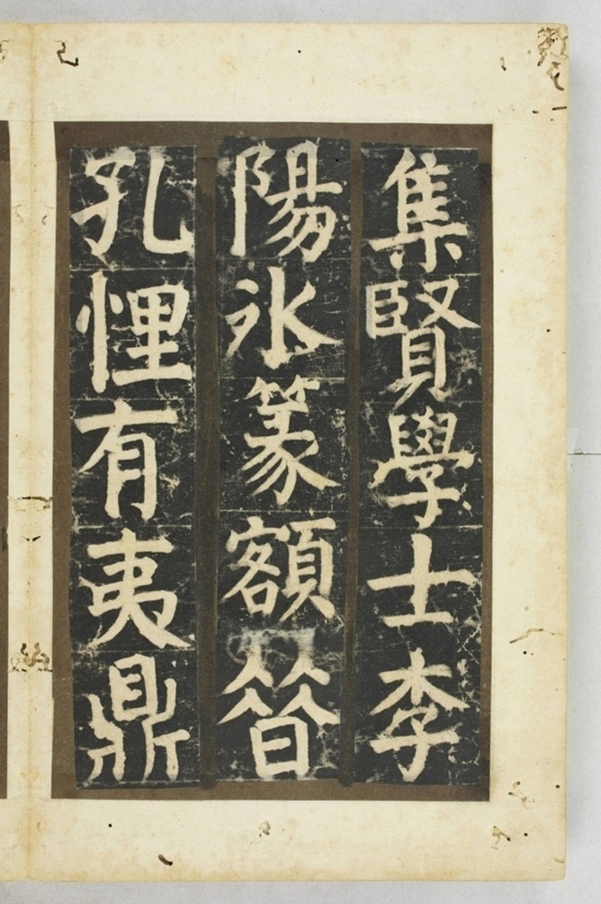 集賢學士李
陽冰篆額㫺
孔悝有夷鼎